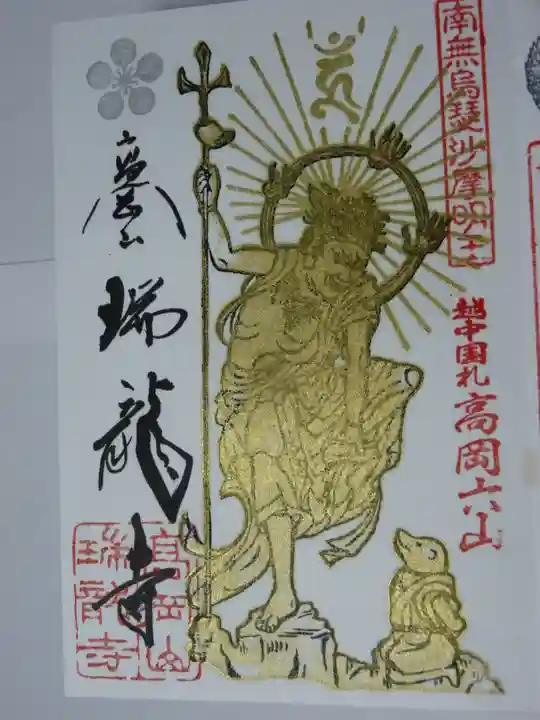 南無烏瑟沙摩明王
越中国札高岡山
高岡山
瑞龍寺
高岡山
瑞龍寺